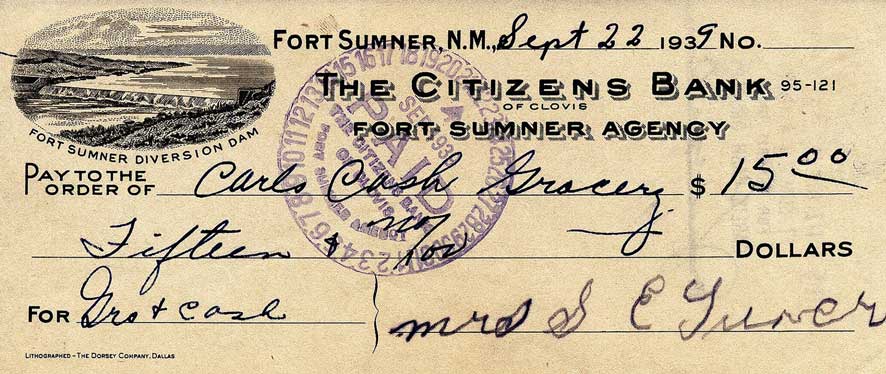 FORT SUMNER, N.M., Sept 22 1939 No.
THE CITIZENS BANK 95-121
OF CLOVIS
FORT SUMNER AGENCY
FORT SUMNER DIVERSION DAM
PAY TO THE
ORDER OF Carls Cash Grocery $ 15.00
Fifteen & no/100 DOLLARS
FOR Gro & cash
Mrs S E
LITHOGRAPHED - THE DORSEY COMPANY, DALLAS
PAID
SEP 1939
THE CITIZENS BANK
OF CLOVIS
FORT SUMNER AGENCY